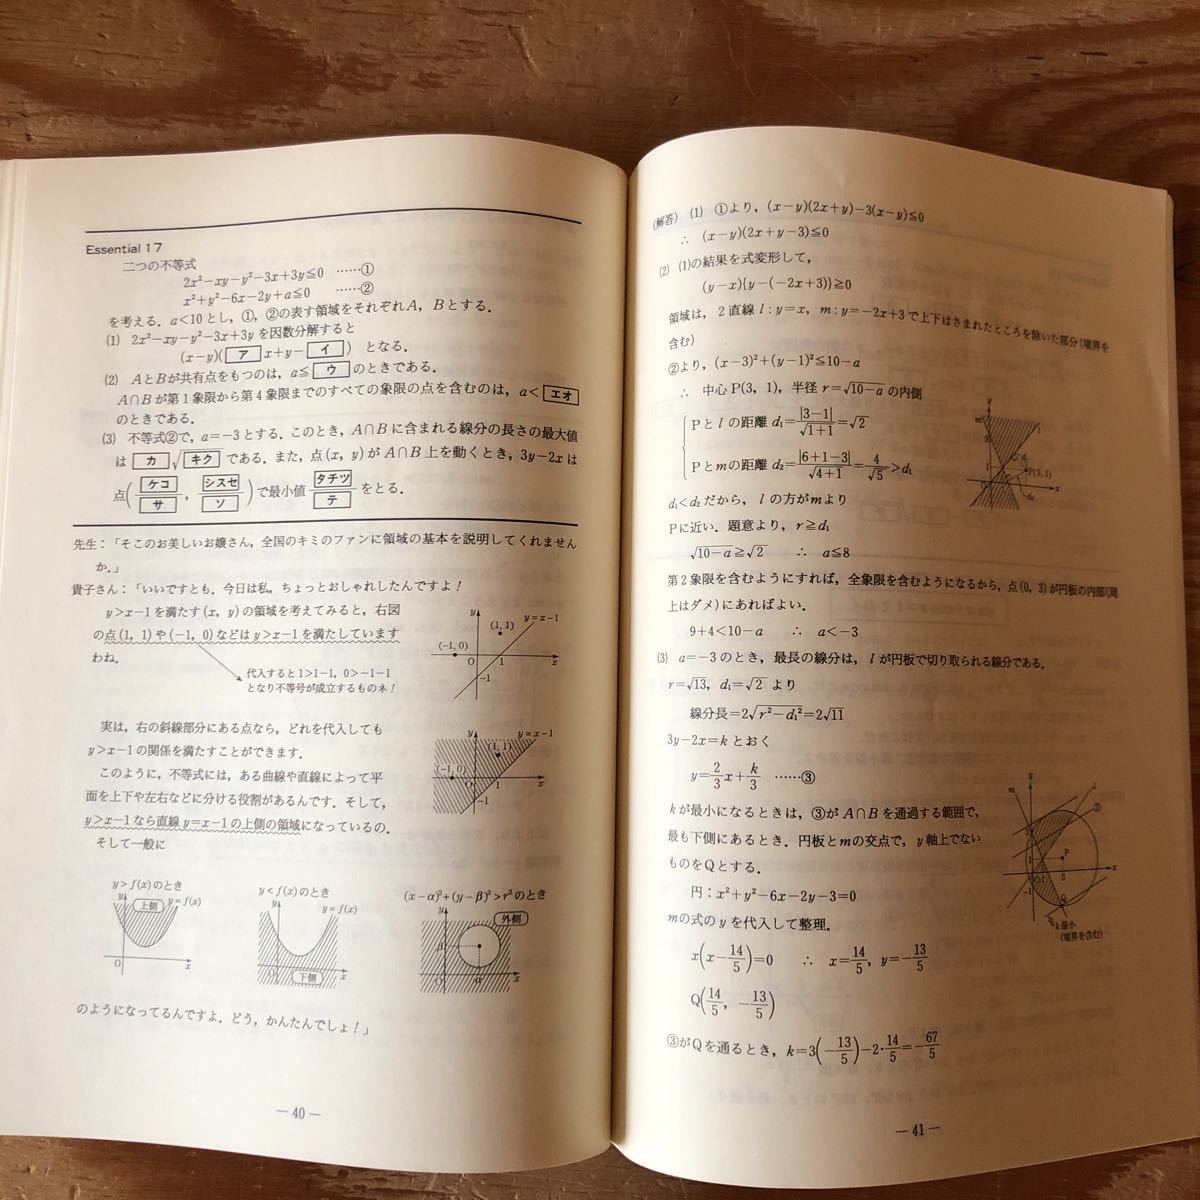 Essential 17
二つの不等式
2x²−xy−y²−3x+3y≦0 ……①
x²+y²−6x−2y+a≦0 ……②
を考える．a<10とし，①，②の表す領域をそれぞれA，Bとする．
(1) 2x²−xy−y²−3x+3yを因数分解すると
(x−y)(ア x+y−イ) となる．
(2) AとBが共有点をもつのは，a≦ウのときである．
A∩Bが第1象限から第4象限までのすべての象限の点を含むのは，a<エオ
のときである．
(3) 不等式②で，a=−3とする．このとき，A∩Bに含まれる線分の長さの最大値
は カ√キク である．また，点(x, y)がA∩B上を動くとき，3y−2xは
点(ケコ/サ , シスセ/ソ)で最小値 タチツ/テ をとる．
先生：「そこのお美しいお嬢さん，全国のキミのファンに領域の基本を説明してくれません
か．」
貴子さん：「いいですとも．今日は私，ちょっとおしゃれしたんですよ！
y>x−1を満たす(x, y)の領域を考えてみると，右図
の点(1, 1)や(−1, 0)などはy>x−1を満たしています
わね．
代入すると1>1−1, 0>−1−1
となり不等号が成立するものネ！
y
y=x−1
(1, 1)
(−1, 0)
O
1
x
−1
実は，右の斜線部分にある点なら，どれを代入しても
y>x−1の関係を満たすことができます．
このように，不等式には，ある曲線や直線によって平
面を上下や左右などに分ける役割があるんです．そして，
y>x−1なら直線y=x−1の上側の領域になっているの．
そして一般に
y
y=x−1
(1, 1)
(−1, 0)
O
1
x
−1
y>f(x)のとき
y
上側
y=f(x)
O
x
y<f(x)のとき
y
y=f(x)
O
下側
x
(x−α)²+(y−β)²>r²のとき
y
外側
β
O
α
x
のようになってるんですよ．どう，かんたんでしょ！」
— 40 —
(解答) (1) ①より，(x−y)(2x+y)−3(x−y)≦0
∴ (x−y)(2x+y−3)≦0
(2) (1)の結果を式変形して，
(y−x){y−(−2x+3)}≧0
領域は，2直線l：y=x，m：y=−2x+3で上下はさまれたところを除いた部分(境界を
含む)
②より，(x−3)²+(y−1)²≦10−a
∴ 中心P(3, 1)，半径r=√10−aの内側
Pとlの距離d₁=|3−1|/√1+1=√2
Pとmの距離d₂=|6+1−3|/√4+1=4/√5>d₁
d₁<d₂だから，lの方がmより
Pに近い．題意より，r≧d₁
√10−a≧√2 ∴ a≦8
y
m
l
3
1
d₁
P(3, 1)
O
x
d₂
第2象限を含むようにすれば，全象限を含むようになるから，点(0, 3)が円板の内部(周
上はダメ)にあればよい．
9+4<10−a ∴ a<−3
(3) a=−3のとき，最長の線分は，lが円板で切り取られる線分である．
r=√13，d₁=√2 より
線分長=2√r²−d₁²=2√11
3y−2x=kとおく
y=2/3x+k/3 ……③
kが最小になるときは，③がA∩Bを通過する範囲で，
最も下側にあるとき．円板とmの交点で，y軸上でない
ものをQとする．
円：x²+y²−6x−2y−3=0
mの式のyを代入して整理．
x(x−14/5)=0 ∴ x=14/5, y=−13/5
Q(14/5, −13/5)
③がQを通るとき，k=3(−13/5)−2・14/5=−67/5
m
y
l
③
P
1
O
3
x
−1
Q
k 最小
(境界を含む)
— 41 —